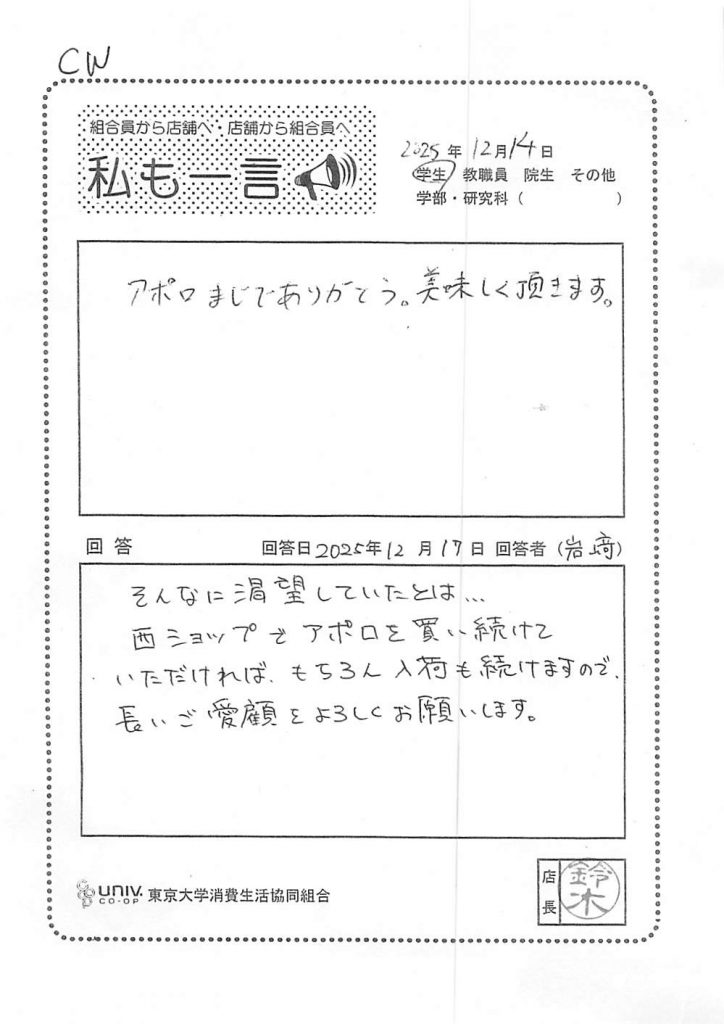 CW
組合員から店舗へ・店舗から組合員へ
私も一言
2025年 12月14日
学生 教職員 院生 その他
学部・研究科（ ）
アポロまじでありがとう。美味しく頂きます。
回答 回答日2025年12月17日 回答者（岩﨑）
そんなに渇望していたとは...
西ショップでアポロを買い続けて
いただければ、もちろん入荷も続けますので、
長いご愛顧をよろしくお願いします。
UNIV. CO-OP 東京大学消費生活協同組合
店長 鈴木